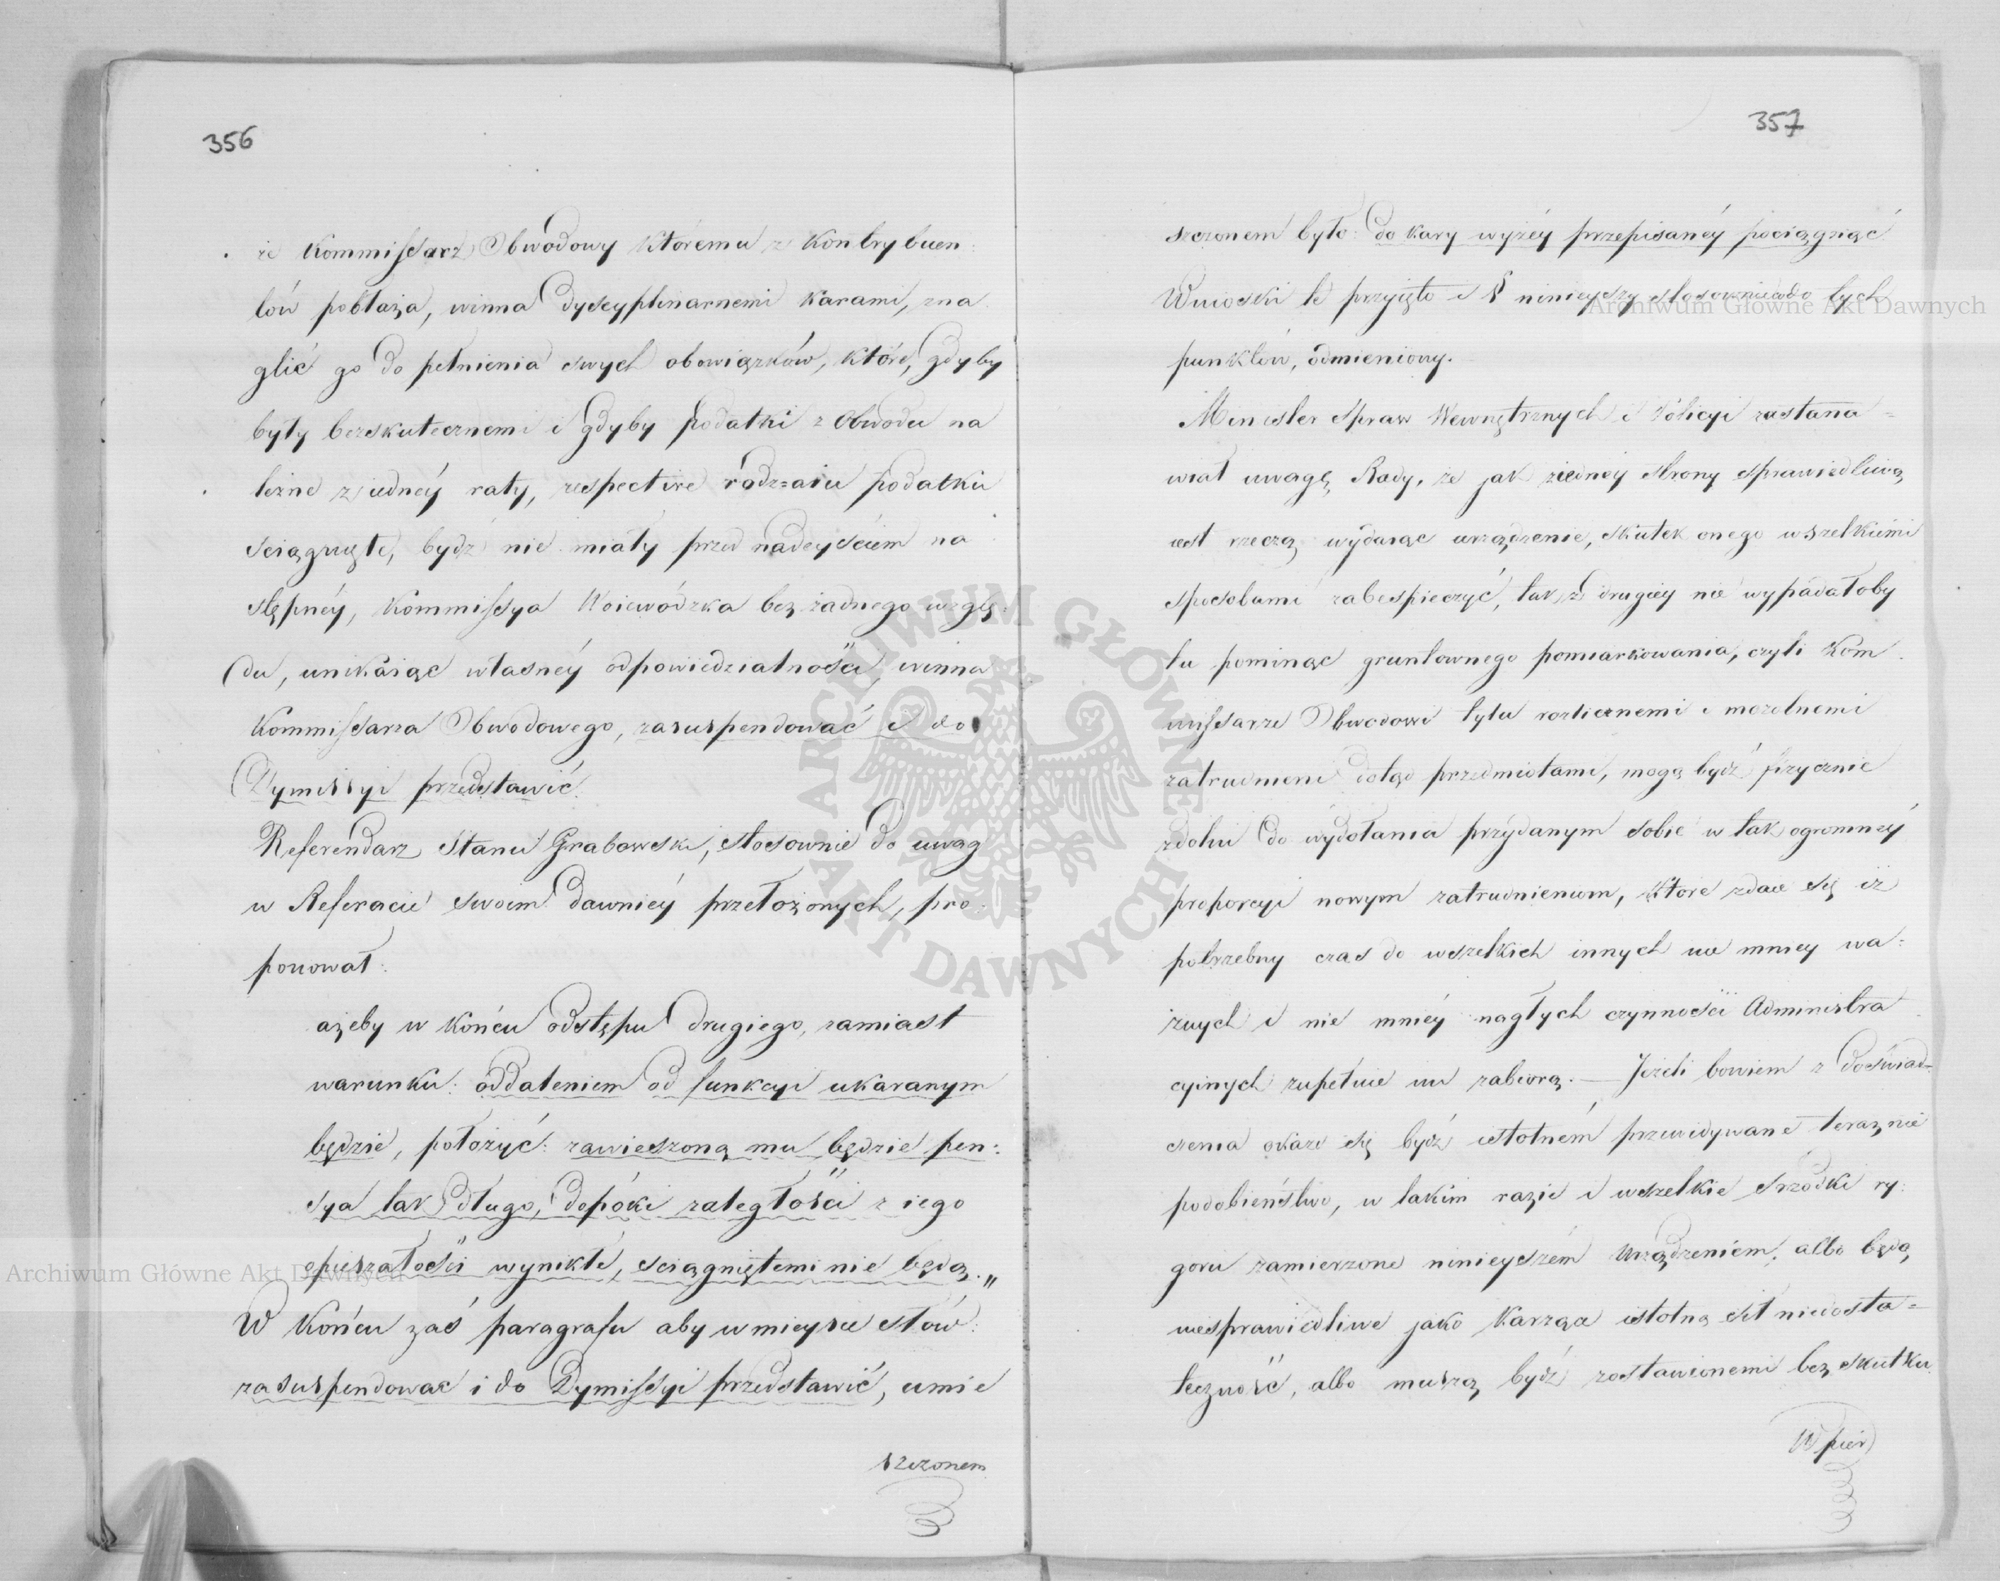 356
że Kommissarz Obwodowy któremu z Kontrybuen:
tów pobłaża, winna dyscyplinarnemi karami, zna
glić go do pełnienia swych obowiązków, które, gdyby
były bezskutecznemi i gdyby podatki z Obwodu na
leżne z iedney raty, respective rodzaiu podatku
sciągnięte, bydź nie miały przed nadeyściem na
stępnéy, Kommissya Woiewódzka bez żadnego wzglę:
du, unikaiąc własnéy odpowiedzialności, winna
Kommissarza Obwodowego, zasuspendować i do
Dymissyi przedstawić.
Referendarz Stanu Grabowski, stosownie do uwag
w Referacie swoim dawniéy przełożonych, pro:
ponował:
ażeby w końcu odstępu drugiego, zamiast
warunku: oddaleniem od funkcyi ukaranym
będzie, położyć: zawieszoną mu będzie pen:
sya tak długo, dopóki zaległości z iego
opieszałości wynikłe, sciągniętemi nie będą."
W końcu zaś paragrafu aby w mieysce słów:
zasuspendować i do Dymissyi przedstawić, umie
szczonem
357
szczonem było: do kary wyżéy przepisanéy pociągnąć
Wnioski te przyięto i § ninieyszy stosownie do tych
punktów, odmieniony.
Minister Spraw Wewnętrznych i Policyi zastana=
wiał uwagę Rady, że jak z iednéy strony sprawiedliwą
iest rzeczą wydaiąc urządzenie, skutek onego wszelkiemi
sposobami zabespieczyć, tak z drugiéy nie wypadałoby
tu pominąć gruntownego pomiarkowania, czyli Kom
missarze Obwodowi tylu rozlicznemi i mozolnemi
zatrudnieni dotąd przedmiotami, mogą bydź fizycznie
zdolni do wydołania przydanym sobie w tak ogromnéy
proporcyi nowym zatrudnieniom, które zdaie się iż
potrzebny czas do wszelkich innych nie mniey wa:
żnych i nie mniéy nagłych czynności Administra
cyinych zupełnie im zabiorą. — Jeżeli bowiem z doświad=
czenia okaże się bydź istotném przewidywane teraz nie
podobieństwo, w takim razie i wszelkie srzodki ry:
goru zamierzone ninieyszém Urządzeniem, albo będą
niesprawiedliwe jako karzące istotną sił niedosta=
teczność, albo muszą bydź zostawionemi bez skutku
W pier
Archiwum Główne Akt Dawnych
Archiwum Główne Akt Dawnych
ARCHIWUM GŁÓWNE AKT DAWNYCH